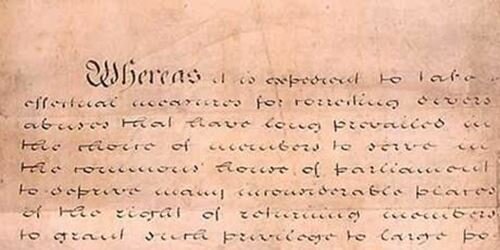 Whereas it is expedient to take
effectual measures for correcting divers
abuses that have long prevailed in
the choice of members to serve in
the commons house of parliament
to deprive many inconsiderable places
of the right of returning members
to grant such privilege to large po